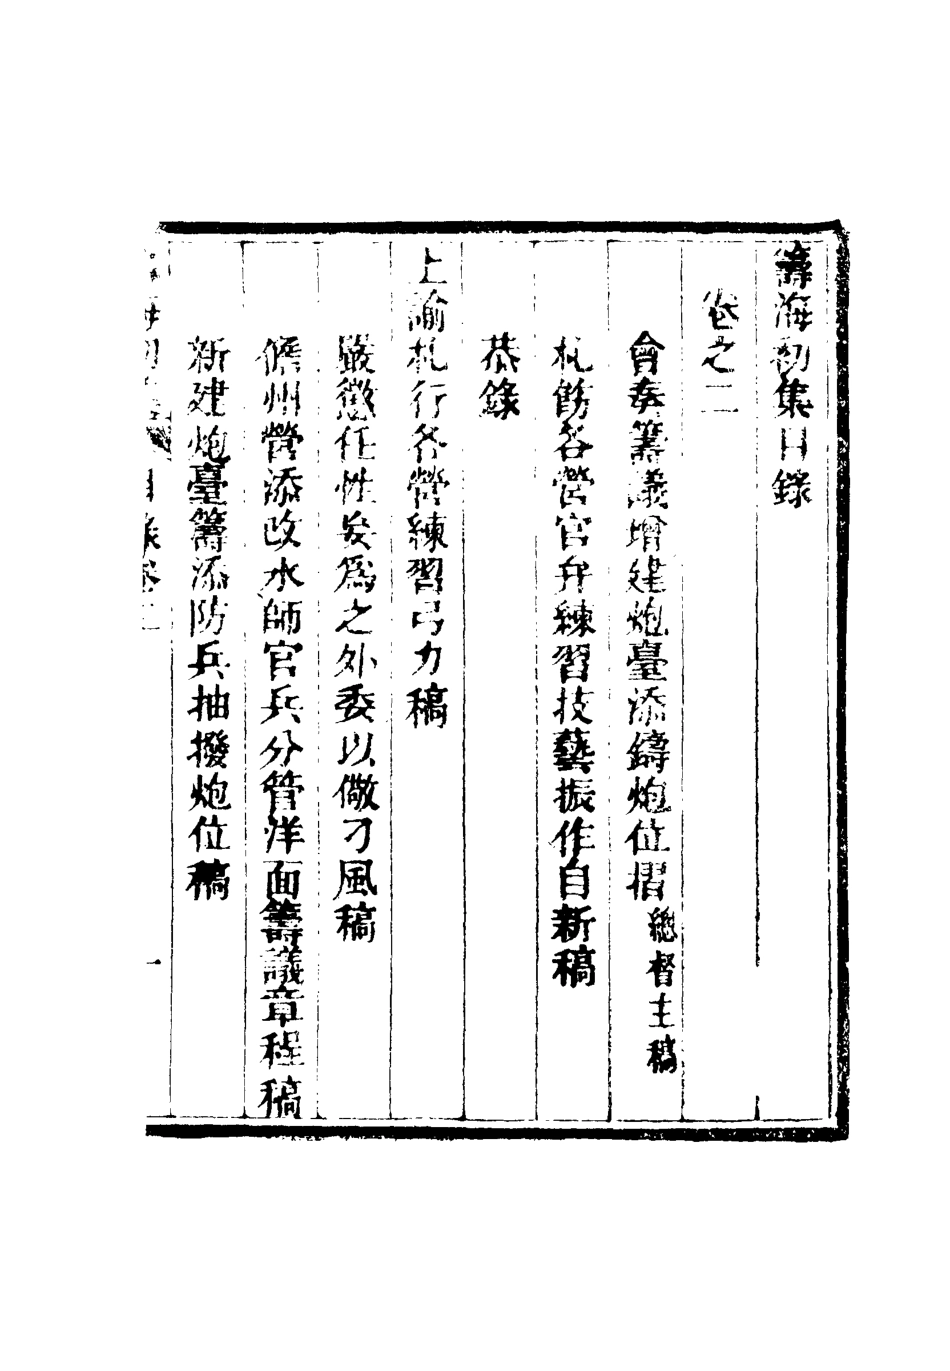 籌海初集目錄
卷之二
會奏籌議增建炮臺添鑄炮位摺總督主稿
札飭各營官弁練習技藝振作自新稿
恭錄
上諭札行各營練習弓力稿
嚴懲任性妄爲之外委以儆刁風稿
儋州營添改水師官兵分管洋面籌議章程稿
新建炮臺籌添防兵抽撥炮位稿
海初集 目錄卷二 一